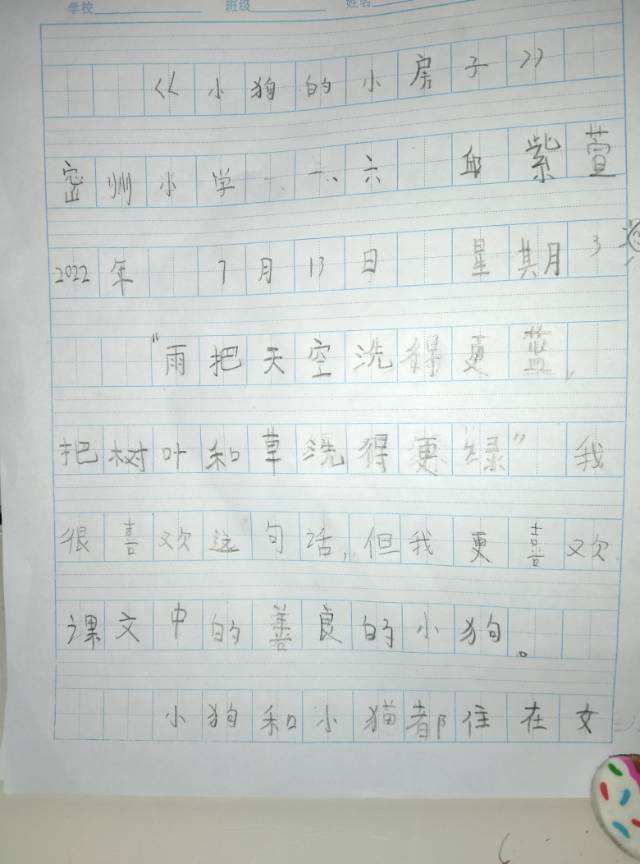 学校 班级 姓名
《小狗的小房子》
密州小学 一、六 邱紫萱
2022年 7月13日 星期月3
“雨把天空洗得更蓝,
把树叶和草洗得更绿”我
很喜欢这句话,但我更喜欢
课文中的善良的小狗。
小狗和小猫都住在女